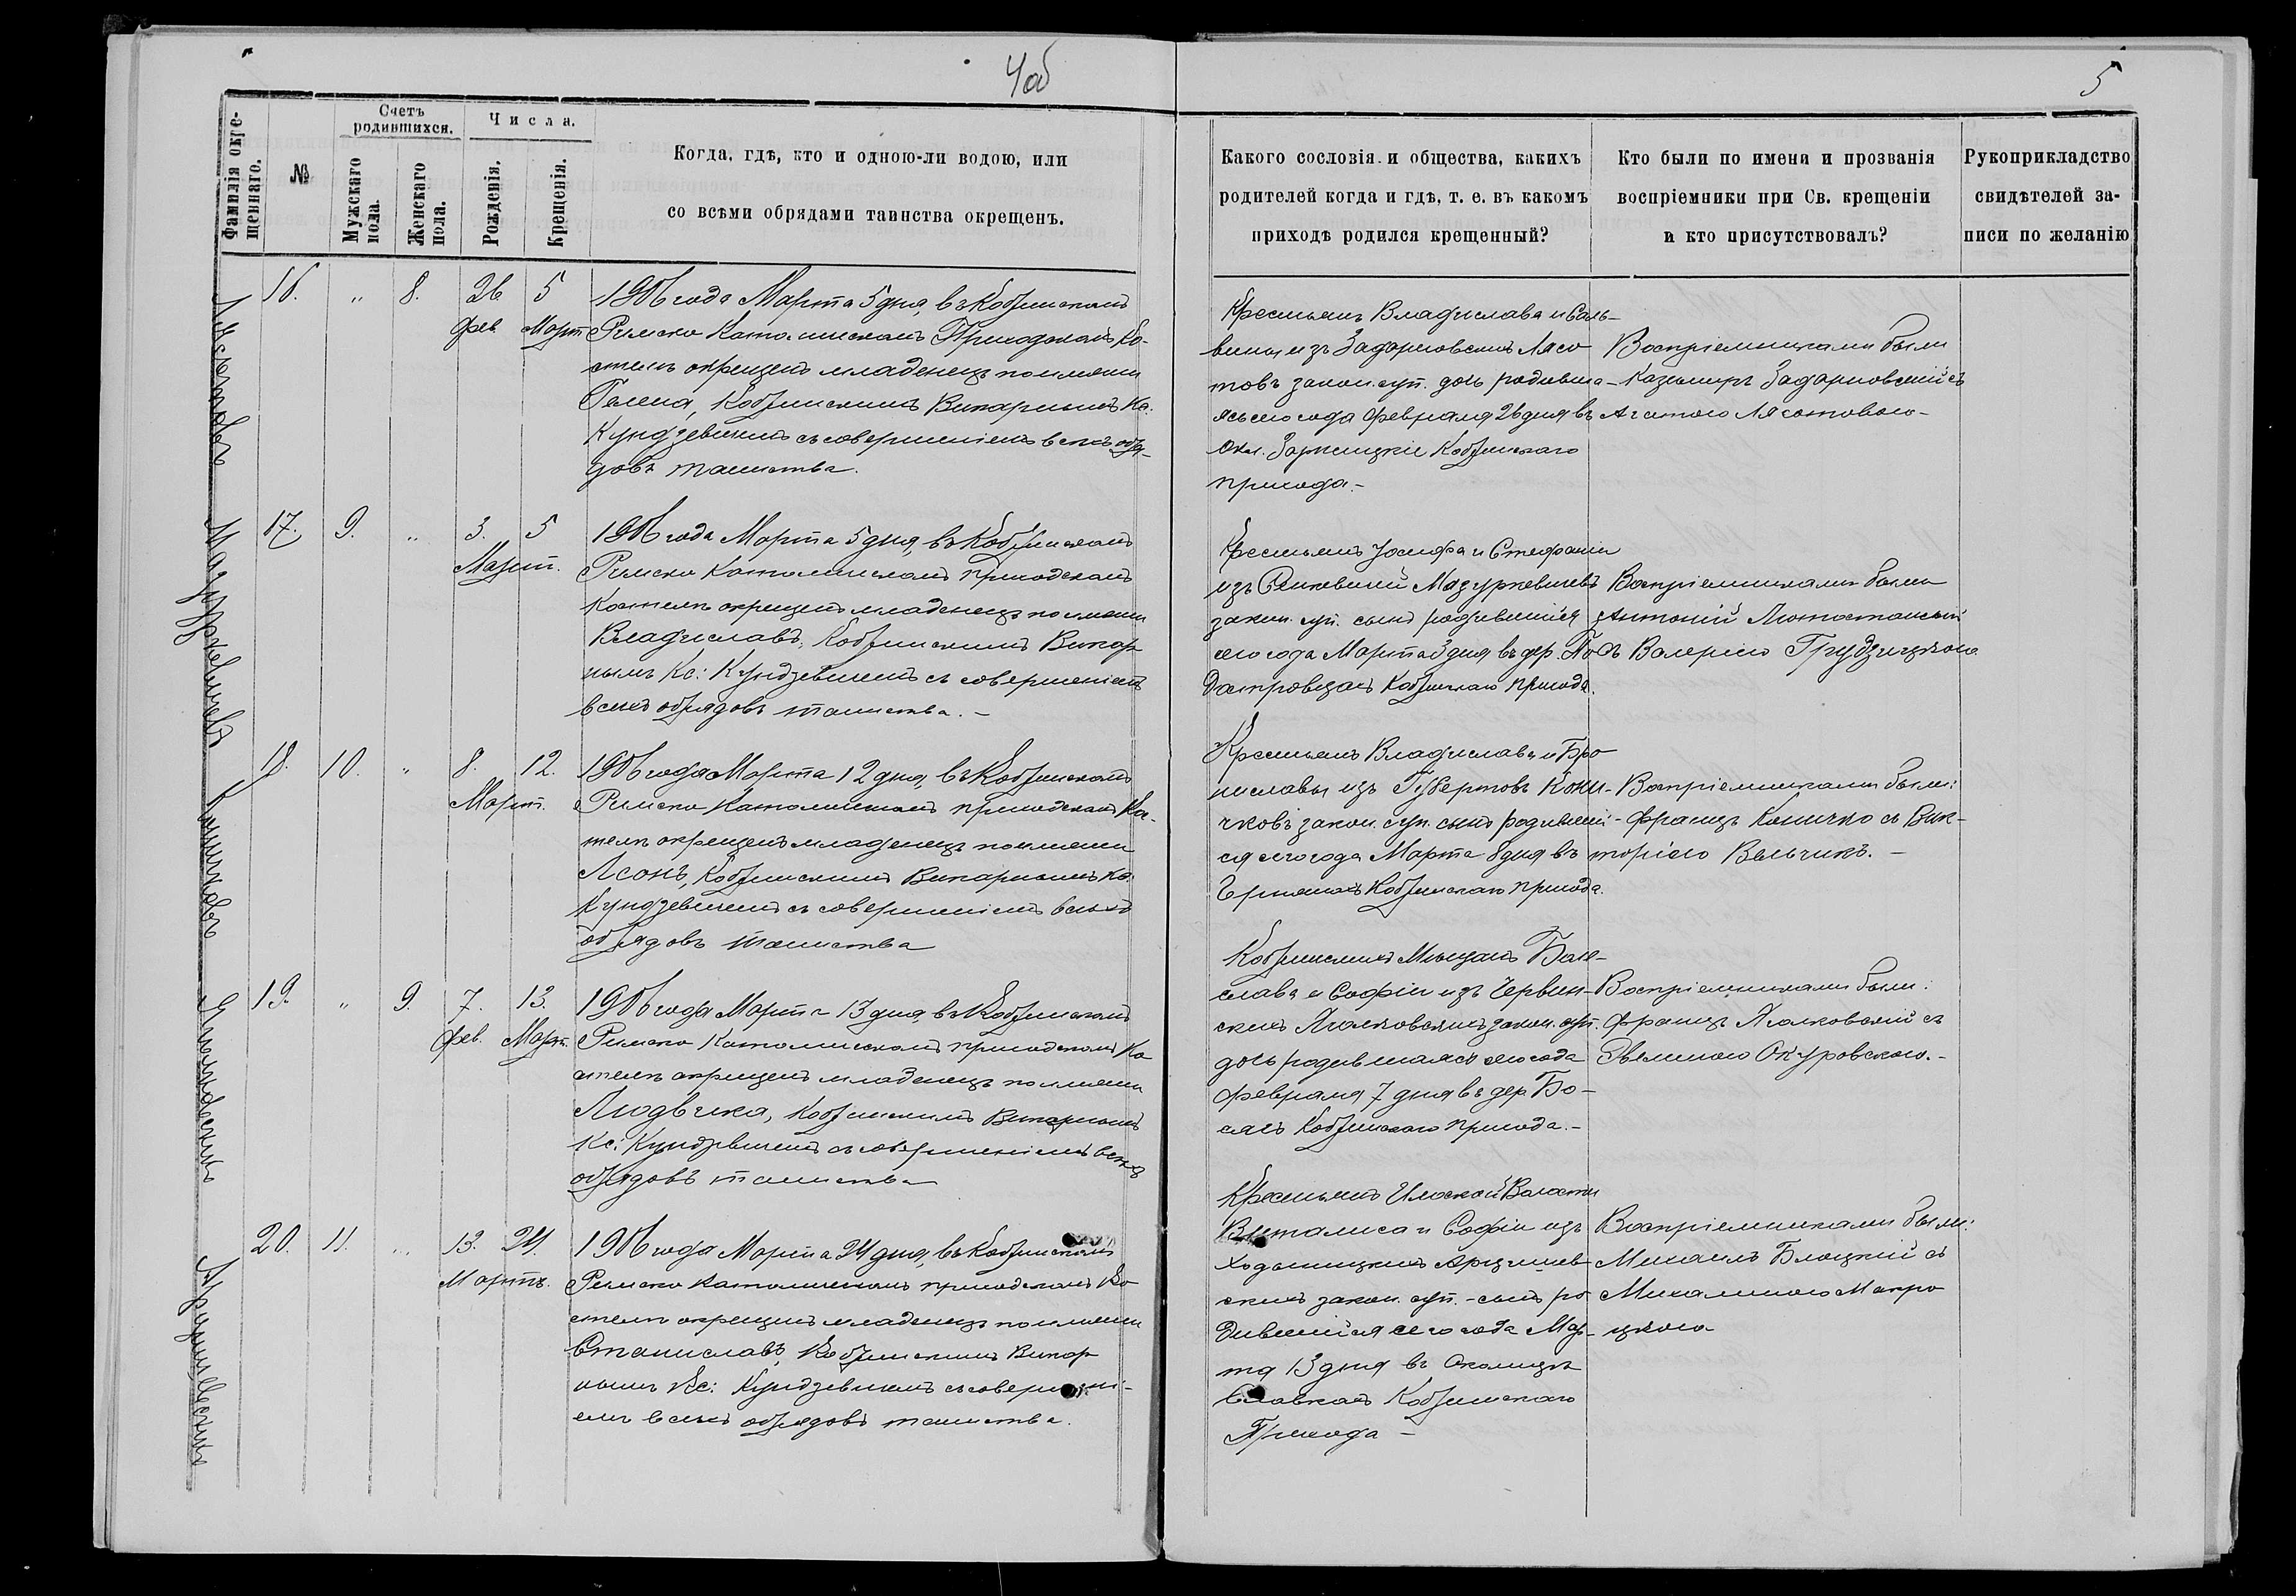 4об
5
Фамилія окре-
щеннаго.
№
Счетъ
родившихся.
Мужскаго
пола.
Женскаго
пола.
Числа.
Рожденія.
Крещенія.
Когда, гдѣ, кто и одною-ли водою, или
со всѣми обрядами таинства окрещенъ.
Какого сословія и общества, какихъ
родителей когда и гдѣ, т. е. въ какомъ
приходѣ родился крещенный?
Кто были по имени и прозванія
воспріемники при Св. крещеніи
и кто присутствовалъ?
Рукоприкладство
свидѣтелей за-
писи по желанію
Лясотовъ
16. " 8. 26 5
Фев. Март
1906 года Марта 5 дня, въ Кобринскомъ
Римско Католическомъ Приходскомъ Ко-
стелѣ окрещенъ младенецъ по имени
Гелена, Кобринскимъ Викарнымъ Кс.
Кундзевичемъ съ совершеніемъ всѣхъ обря-
довъ таинства.
Крестьянъ Владислава и Саль-
вины изъ Задарновскихъ Лясо
товъ закон. суп. дочь родивша-
яся сего года Февраля 26 дня въ
Окл. Кобринскаго
прихода.-
Воспріемниками были
Казимиръ Задарновскій съ
Агатою Лясотовою-
Мазуркевичъ
17. 9. " 3. 5
Март.
1906 года Марта 5 дня, въ Кобринскомъ
Римско Католическомъ приходскомъ
Костелѣ окрещенъ младенецъ по имени
Владиславъ, Кобринскимъ Викар
нымъ Кс: Кундзевичемъ съ совершеніемъ
всѣхъ обрядовъ таинства.-
Крестьянъ Іосифа и Стефаніи
изъ Мазуркевичевъ
закон. суп. сынъ родившійся
сего года Марта 3 дня въ дер. По
Кобринскаго прихода.
Воспріемниками были
Антоній Лютостанскій
съ Валеріею Грудзицкою
Коничковъ
18. 10. " 8. 12.
Март.
1906 года Марта 12 дня, въ Кобринскомъ
Римско Католическомъ приходскомъ Ко-
стелѣ окрещенъ младенецъ по имени
Леонъ, Кобринскимъ Викарнымъ Кс.
Кундзевичемъ съ совершеніемъ всѣхъ
обрядовъ таинства
Крестьянъ Владислава и Бро
ниславы изъ Губертовъ Кони-
чковъ закон. суп. сынъ родивший-
ся сего года Марта 8 дня въ
Кобринскаго прихода.
Воспріемниками были:
Францъ Коничко съ Вик-
торіею Вельчикъ.-
19. " 9. 7. 13.
Фев. Март.
1906 года Марта 13 дня, въ Кобринскомъ
Римско Католическомъ приходскомъ Ко
стелѣ окрещенъ младенецъ по имени
Людвика, Кобринскимъ Викарнымъ
Кс: Кундзевичемъ съ совершеніемъ всѣхъ
обрядовъ таинства
Кобринскихъ Мѣщанъ Боле-
слава и Софіи изъ Червин-
скихъ закон. суп.
дочь родившаяся сего года
Февраля 7 дня въ дер. Бо-
Кобринскаго прихода.-
Воспріемниками были:
Францъ съ
Эвелиною Окуровскою.-
Арцишевскихъ
20. 11. " 13. 24.
Мартъ.
1906 года Марта 24 дня, въ Кобринскомъ
Римско Католическомъ приходскомъ Ко
стелѣ окрещенъ младенецъ по имени
Станиславъ, Кобринскимъ Викар
нымъ Кс: Кундзевичемъ съ совершені-
емъ всѣхъ обрядовъ таинства.
Крестьянъ Илоской Волости
Виталиса и Софіи изъ
Ходыницкихъ Арцишев
скихъ закон. суп.- сынъ ро
дившійся сего года Мар-
та 13 дня въ Околицѣ
Кобринскаго
Прихода-
Воспріемниками были:
Михаилъ Блоцкій съ
Михалиною Мокро
цкою